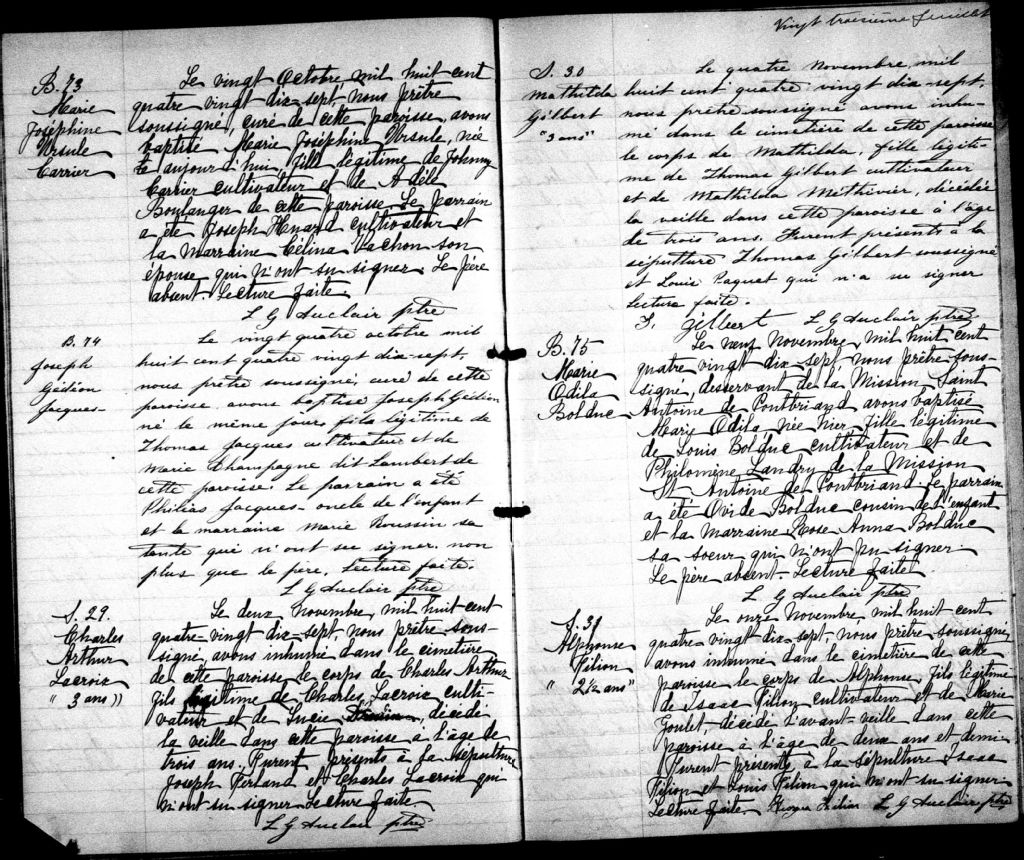 B. 73
Marie
Joséphine
Ursule
Carrier
Le vingt Octobre mil huit cent
quatre vingt dix-sept nous prêtre
soussigné, curé de cette paroisse, avons
baptisé Marie Joséphine Ursule, née
aujourd'hui, fille légitime de Johnny
Carrier cultivateur et de Adèle
Boulanger de cette paroisse Le parrain
a été Joseph Huard cultivateur et
la marraine Célina Vachon son
épouse qui n'ont su signer Le père
absent. Lecture faite
L G Auclair ptre
B. 74
Joseph
Gédéon
Jacques
Le vingt quatre octobre mil
huit cent quatre vingt dix-sept,
nous prêtre soussigné, curé de cette
paroisse avons baptisé Joseph Gédéon
né le même jours fils légitime de
Thomas Jacques cultivateur et de
Marie Champagne dit Lambert de
cette paroisse. Le parrain a été
Philias Jacques oncle de l'enfant
et la marraine Marie Roussin sa
tante qui n'ont su signer non
plus que le père, Lecture faite.
L G Auclair ptre
S. 29.
Charles
Arthur
Lacroix
" 3 ans "
Le deux Novembre, mil huit cent
quatre-vingt dix-sept nous prêtre sous-
signé, avons inhumé dans le cimetière
de cette paroisse le corps de Charles Arthur
fils légitime de Charles Lacroix culti-
vateur et de Lucie décédé
la veille dans cette paroisse à l'âge de
trois ans. Furent présents à la sépulture
Joseph Ferland et Charles Lacroix qui
n'ont su signer Lecture faite
L G Auclair ptre
Vingt troisième feuillet
S. 30
Mathilda
Gilbert
"3 ans"
Le quatre Novembre, mil
huit cent quatre vingt dix-sept,
nous prêtre soussigné avons inhu-
mé dans le cimetière de cette paroisse
le corps de Mathilda, fille légiti-
me de Thomas Gilbert cultivateur
et de Mathilda Méthivier, décédée
la veille dans cette paroisse à l'âge
de trois ans. Furent présents à la
sépulture Thomas Gilbert soussigné
et Louis Paquet qui n'a su signer
Lecture faite.
T. gilbert L G Auclair ptre
B. 75
Marie
Odila
Bolduc
Le neuf Novembre, mil huit cent
quatre vingt dix sept, nous prêtre sous-
signé, desservant de la Mission Saint
Antoine de Pontbriand avons baptisé
Marie Odila née hier fille légitime
de Louis Bolduc cultivateur et de
Philomène Landry de la Mission
St Antoine de Pontbriand. Le parrain
a été Ovide Bolduc cousin de l'enfant
et la marraine Rose Anna Bolduc
sa soeur qui n'ont pu signer.
Le père absent - Lecture faite
L G Auclair ptre
S. 31
Alphonse
Filion
" 2½ ans"
Le onze Novembre, mil huit cent
quatre-vingt dix-sept, nous prêtre soussigné,
avons inhumé dans le cimetière de cette
paroisse le corps de Alphonse, fils légitime
de Isaac Filion cultivateur et de Marie
Goulet, décédé l'avant-veille dans cette
paroisse à l'âge de deux ans et demi
Furent présents à la sépulture Isaac
Filion et Louis Filion qui n'ont su signer
Lecture faite L G Auclair ptre